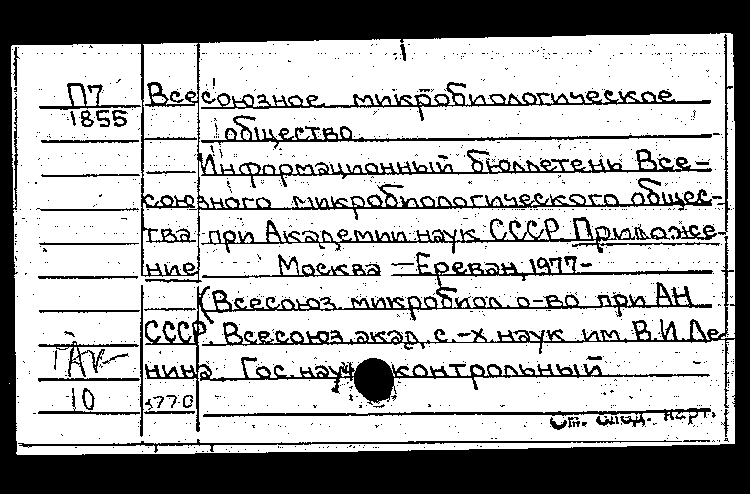 П7 Всесоюзное микробиологическое
1855 общество
Информационный бюллетень Все-
союзного микробиологического общес-
тва при Академии наук СССР Приложе-
ние Москва – Ереван, 1977-
(Всесоюз. микробиол. о-во при АН
СССР. Всесоюз. акад. с.-х. наук им. В.И. Ле-
нина. Гос. науч контрольный
10
См. след. карт.